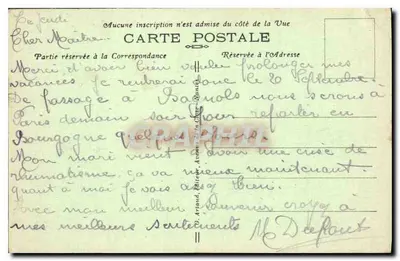 Ce jeudi
Aucune inscription n'est admise du côté de la Vue
Cher Maître
CARTE POSTALE
Partie réservée à la Correspondance
Réservée à l'Adresse
Merci d'avoir bien voulu prolonger mes
vacances. Je rentrerai donc le 20 Septembre.
De passage à Bagnols nous serons à
Paris demain soir pour repartir en
Bourgogne quelques jours.
Mon mari vient d'avoir une crise de
rhumatisme. ça va mieux maintenant
quant à moi je vais assez bien.
Avec mon meilleur souvenir croyez à
mes meilleurs sentiments